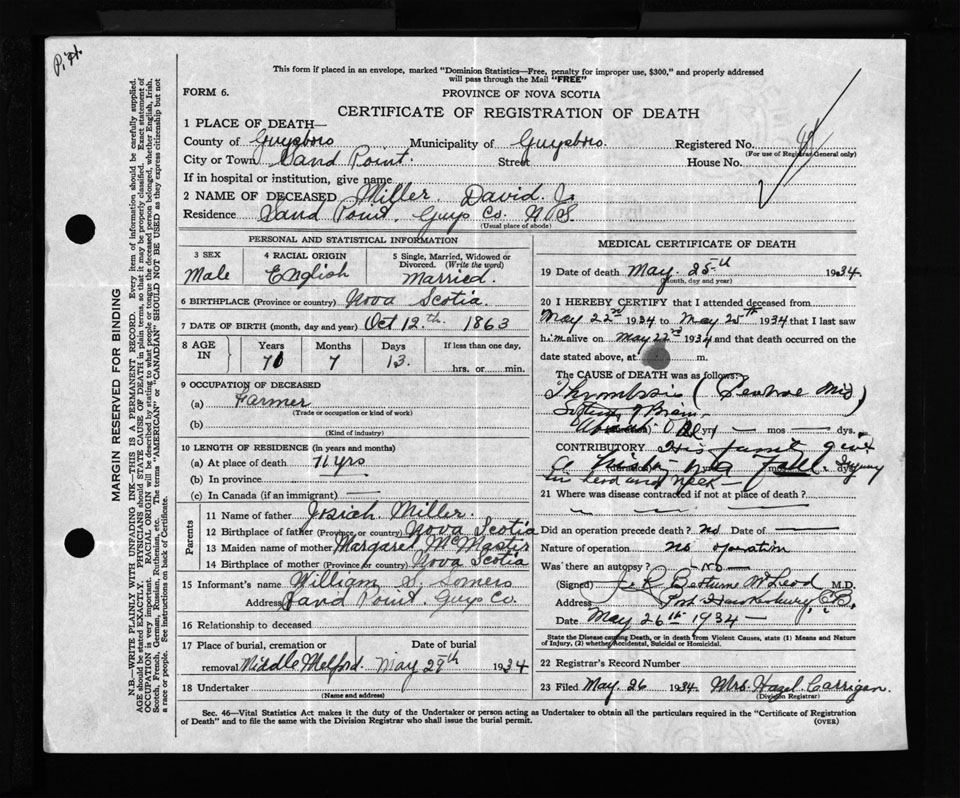 This form if placed in an envelope, marked "Dominion Statistics—Free, penalty for improper use, $300," and properly addressed
will pass through the Mail "FREE"
FORM 6.
PROVINCE OF NOVA SCOTIA
CERTIFICATE OF REGISTRATION OF DEATH
1 PLACE OF DEATH—
County of Guysboro Municipality of Guysboro. Registered No.
(For use of Registrar General only)
City or Town Sand Point. Street House No.
If in hospital or institution, give name
2 NAME OF DECEASED Miller, David J.
Residence Sand Point, Guys Co. N.S
(Usual place of abode)
PERSONAL AND STATISTICAL INFORMATION
3 SEX
Male
4 RACIAL ORIGIN
English
5 Single, Married, Widowed or
Divorced. (Write the word)
Married.
6 BIRTHPLACE (Province or country) Nova Scotia
7 DATE OF BIRTH (month, day and year) Oct 12th 1863
8 AGE IN
Years Months Days If less than one day,
7 13. hrs. or min.
9 OCCUPATION OF DECEASED
(a) Farmer
(Trade or occupation or kind of work)
(b)
(Kind of industry)
10 LENGTH OF RESIDENCE (in years and months)
(a) At place of death 71 yrs
(b) In province
(c) In Canada (if an immigrant) —
Parents
11 Name of father Josiah Miller
12 Birthplace of father (Province or country) Nova Scotia
13 Maiden name of mother Margaret McMaster
14 Birthplace of mother (Province or country) Nova Scotia
15 Informant's name William S. Somers
Address Sand Point, Guys Co.
16 Relationship to deceased
17 Place of burial, cremation or Date of burial
removal Middle Melford. May 28th 1934
18 Undertaker
(Name and address)
MEDICAL CERTIFICATE OF DEATH
19 Date of death May 25th 1934.
(Month, day and year)
20 I HEREBY CERTIFY that I attended deceased from
May 22nd 1934 to May 25th 1934 that I last saw
him alive on May 22nd 1934 and that death occurred on the
date stated above, at m.
The CAUSE of DEATH was as follows:
Thrombosis
(duration) yrs — mos — dys.
CONTRIBUTORY His
a history Injury
in head and neck —
21 Where was disease contracted if not at place of death?
Did an operation precede death? no Date of —
Nature of operation no operation
Was there an autopsy? — No —
(Signed) McLeod M.D.
Address Port Hawkesbury, C.B.
Date May 26th 1934 —
State the Disease causing Death, or in death from Violent Causes, state (1) Means and Nature
of Injury, (2) whether Accidental, Suicidal or Homicidal.
22 Registrar's Record Number
23 Filed May 26 1934. Mrs. Hazel Carrigan.
(Division Registrar)
Sec. 46—Vital Statistics Act makes it the duty of the Undertaker or person acting as Undertaker to obtain all the particulars required in the "Certificate of Registration
of Death" and to file the same with the Division Registrar who shall issue the burial permit.
(OVER)
MARGIN RESERVED FOR BINDING
N.B.—WRITE PLAINLY WITH UNFADING INK—THIS IS A PERMANENT RECORD. Every item of information should be carefully supplied.
AGE should be stated EXACTLY. PHYSICIANS should STATE CAUSE OF DEATH in plain terms, so that it may be properly classified. Exact statement of
OCCUPATION is very important. RACIAL ORIGIN will be described by stating to what people or tongue the deceased person belonged, whether English, Irish,
Scotch, French, German, Russian, Ruthenian, etc. The terms "AMERICAN" or "CANADIAN" SHOULD NOT BE USED as they express citizenship but not
a race or people. See instructions on back of Certificate.